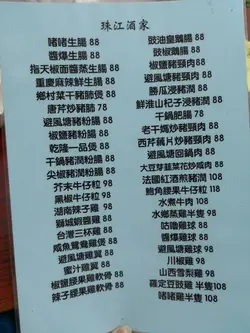 珠江酒家
啫啫生腸 88
醬爆生腸 88
指天椒面醬蒸生腸 88
重慶麻辣鮮生腸 88
鄉村菜干豬肺煲 88
唐芹炒豬肺 78
避風塘豬粉腸 88
椒鹽豬粉腸 88
乾隆一品煲 88
干鍋豬潤粉腸 88
尖椒豬潤粉腸 88
芥末牛仔粒 98
黑椒牛仔粒 98
湖南辣子雞 98
獅城蝦醬雞 98
台灣三杯雞 98
咸魚鴛鴦雞煲 98
避風塘雞翼 88
蜜汁雞翼 88
椒鹽腰果雞軟骨 88
辣子腰果雞軟骨 88
豉油皇鵝腸 88
豉椒鵝腸 88
椒鹽豬頸肉 88
避風塘豬頸肉 88
勝瓜浸豬潤 88
鮮淮山杞子浸豬潤 88
干鍋肥腸 88
老干媽炒豬頸肉 88
西芹藕片炒豬頸肉 88
避風塘回鍋肉 88
大豆芽韮菜花炒咸肉 88
法國紅酒煎豬潤 108
鮑角腰果牛仔粒 108
水煮牛肉 108
水鄉蒸雞半隻 98
咕嚕雞球 88
醬爆雞球 88
避風塘雞球 88
川椒雞 98
山西雪梨雞 98
羅定豆豉雞 半隻108
啫啫雞 半隻108